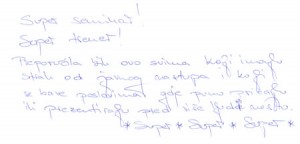 Super seminar!
Super trener!
Preporučila bih ovo svima koji imaju
strah od javnog nastupa i koji
se bave poslovima gdje puno pričaju
ili prezentiraju pred više ljudi
*Super * Super * Super *